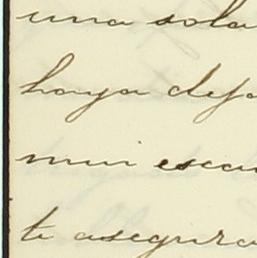 una sola
haya deja
mui esca
te asegura